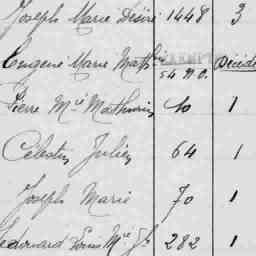 Joseph Marie Désiré 1448 3
Eugene Marie Mathin EXEMPT Décédé
54 n.o.
Pierre Mie Mathurin 10 1
Celestin Julien 64 1
Joseph Marie 70 1
Edouard Louis Mie Jh 282 1